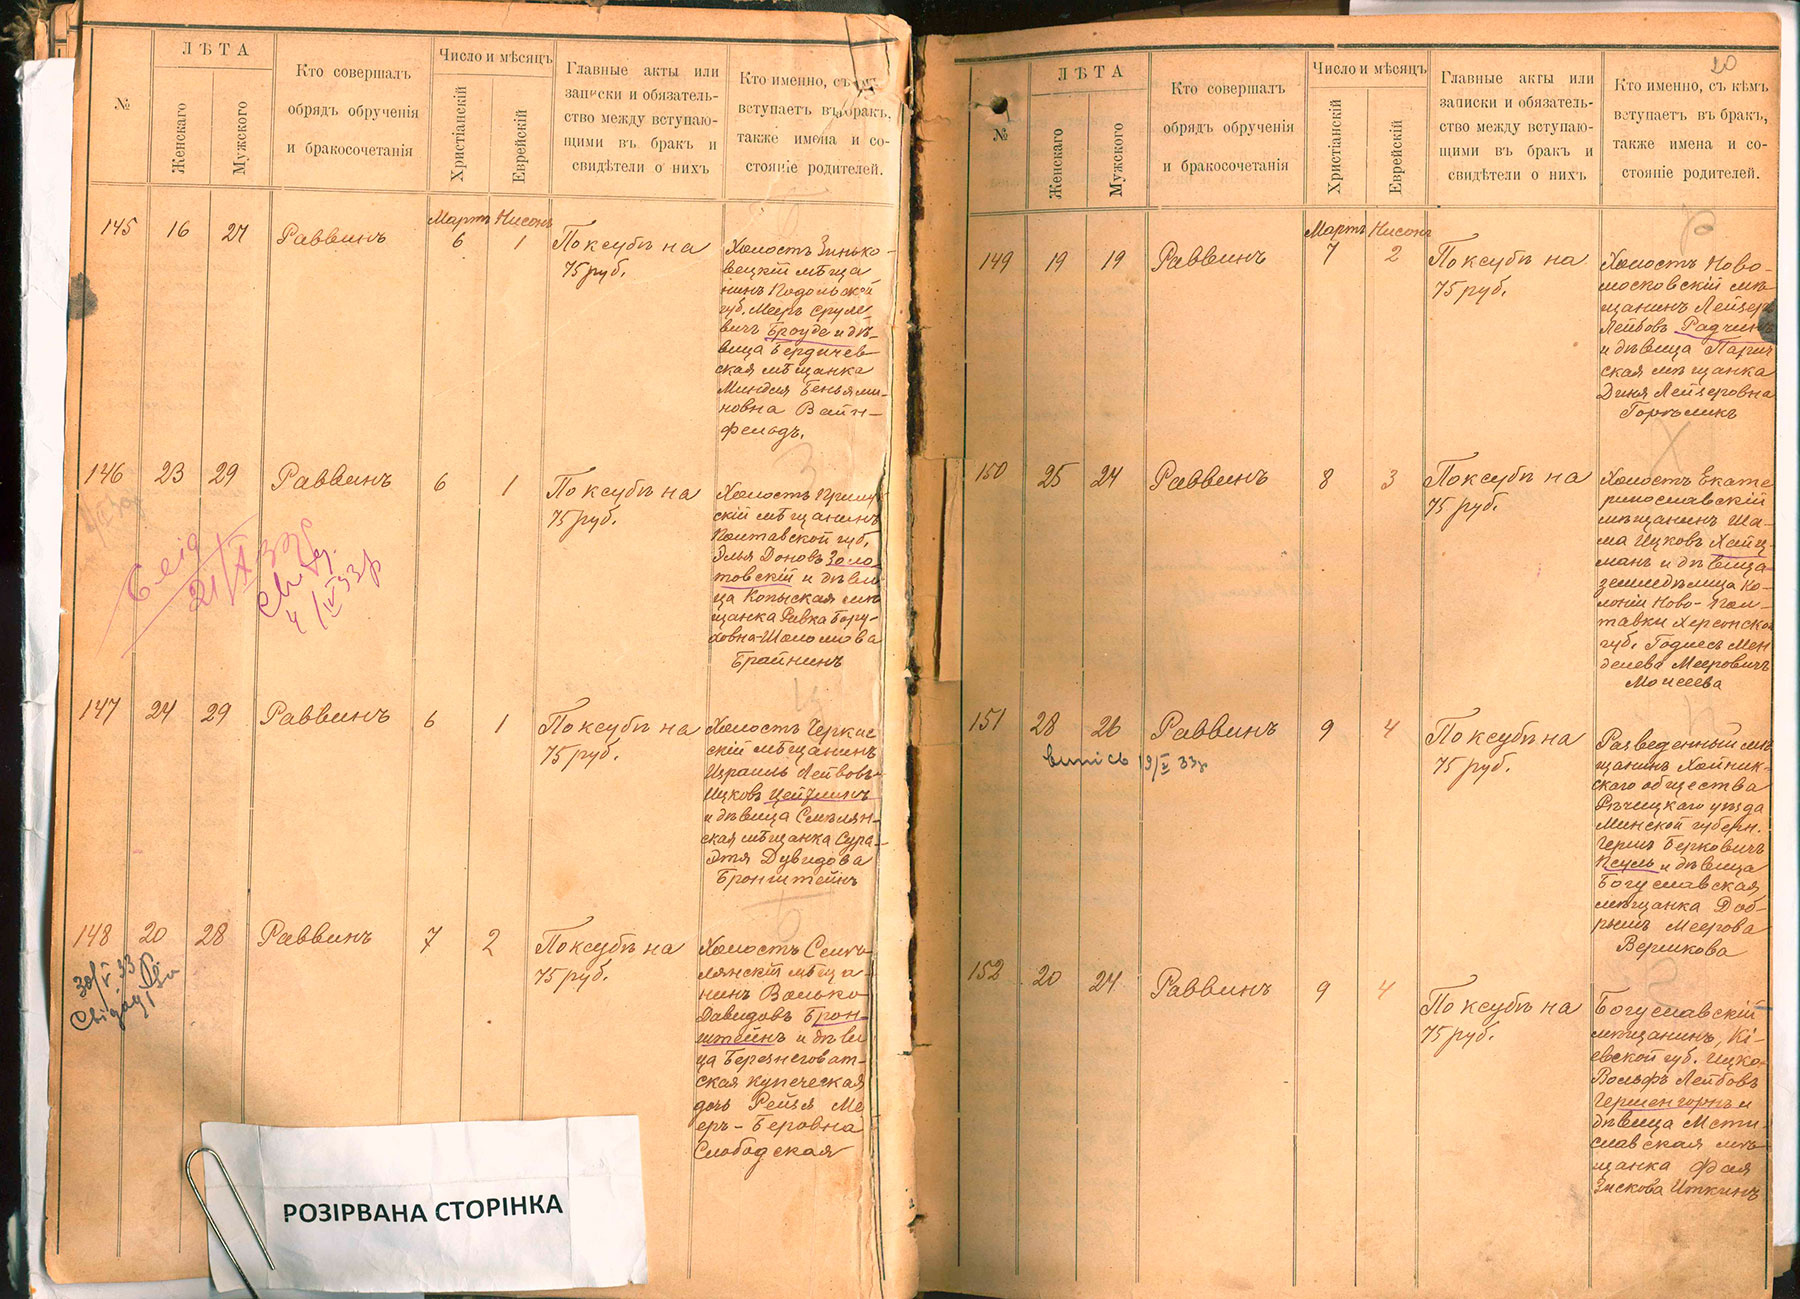 №
ЛѢТА
Женскаго
Мужского
Кто совершалъ
обрядъ обрученія
и бракосочетанія
Число и мѣсяцъ
Христіанскій
Еврейскій
Главные акты или
записки и обязатель-
ство между вступаю-
щими въ бракъ и
свидѣтели о нихъ
Кто именно, съ
вступаетъ въ бракъ,
также имена и со-
стояніе родителей.
145 16 27 Раввинъ
Мартъ Нисонъ
6 1
По ксубѣ на
75 руб.
Холостъ Зинько-
вецкій мѣща
нинъ Подольской
губ. Мееръ Сруле-
вичъ Броуде и дѣ-
вица Бердичев-
ская мѣщанка
Миндля Беньями-
новна Вайн-
фельдъ.
146 23 29 Раввинъ 6 1
По ксубѣ на
75 руб.
Холостъ
скій мѣщанинъ
Полтавской губ.
Элья Доновъ Золо-
товскій и дѣви
ца Копыская мѣ
щанка Ривка Бору-
ховна-Шоломова
Брайнинъ
4/IV 33р
147 24 29 Раввинъ 6 1
По ксубѣ на
75 руб.
Холостъ Черкас
скій мѣщанинъ
Израиль Лейбовъ-
Ицковъ Цейтлинъ
и дѣвица Смѣлян-
ская мѣщанка Сура-
Этя Дувидова
Бронштейнъ
148 20 28 Раввинъ 7 2
По ксубѣ на
75 руб.
Холостъ
лянскій мѣща-
нинъ Волько
Давидовъ Брон-
штейнъ и дѣви
ца Березнеговат-
ская купеческая
дочь Рейзя Ме
еръ-Беровна
Слободская
30/V 33
РОЗІРВАНА СТОРІНКА
20
№
ЛѢТА
Женскаго
Мужского
Кто совершалъ
обрядъ обрученія
и бракосочетанія
Число и мѣсяцъ
Христіанскій
Еврейскій
Главные акты или
записки и обязатель-
ство между вступаю-
щими въ бракъ и
свидѣтели о нихъ
Кто именно, съ кѣмъ
вступаетъ въ бракъ,
также имена и со-
стояніе родителей.
149 19 19 Раввинъ
Мартъ Нисонъ
7 2
По ксубѣ на
75 руб.
Холостъ Ново-
московскій мѣ
щанинъ Лейзеръ
Лейбовъ
и дѣвица Парич
ская мѣщанка
Диня Лейзеровна
Горѣликъ
150 25 24 Раввинъ 8 3
По ксубѣ на
75 руб.
Холостъ Екате
ринославскій
мѣщанинъ Ша-
ма Ицковъ Хайц-
манъ и дѣвица
земледѣлица Ко-
лоніи Ново-Пол-
тавки Херсонской
губ. Годесъ Мен
делева Мееровичъ
Моисеева
151 28 26 Раввинъ 9 4
випись 19/V 33р
По ксубѣ на
75 руб.
Разведенный мѣ
щанинъ Хойник-
скаго общества
Рѣчицкаго уѣзда
Минской губерн.
Гершъ Берковичъ
Псуль и дѣвица
Богуславская
мѣщанка Доб-
рышъ Меерова
Вершкова
152 20 24 Раввинъ 9 4
По ксубѣ на
75 руб.
Богуславскій
мѣщанинъ, Кі-
евской губ. Ицко-
Вольфъ Лейбовъ
Гершенгорнъ и
дѣвица Мсти-
славская мѣ-
щанка Фая
Зискова Иткинъ